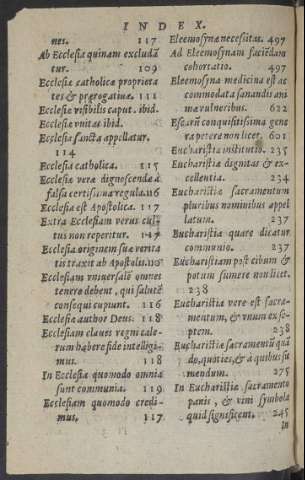 INDEX.
nes. 117
Ab Ecclesia quinam excludã
tur. 109
Ecclesiæ catholicæ proprieta
tes & prærogatiuæ. 111
Ecclesiæ visibilis caput. ibid.
Ecclesiæ vnitas ibid.
Ecclesia sancta appellatur.
114
Ecclesia catholica. 115
Ecclesiæ veræ dignoscendæ à
falsa certissima regula. 116
Ecclesia est Apostolica. 117
Extra Ecclesiam verus cul-
tus non reperitur. 117
Ecclesia originem suæ verita
tis traxit ab Apostolis. 110
Ecclesiam vniuersalẽ omnes
tenere debent, qui salutẽ
consequi cupiunt. 116
Ecclesiæ author Deus. 118
Ecclesiam claues regni cælo-
rum habere fide intelligi-
mus. 118
In Ecclesia quomodo omnia
sunt communia. 119
Ecclesiam quomodo credi-
mus. 117
Eleemosynæ necessitas. 497
Ad Eleemosynam faciẽdam
cohortatio. 497
Eleemosyna medicina est ac
commodata sanandis ani
mæ vulneribus. 622
Escarũ conquisitissima gene
ra petere non licet. 601
Eucharistiæ institutio. 235
Eucharistiæ dignitas & ex-
cellentia. 234
Eucharistiæ sacramentum
pluribus nominibus appel
latum. 237
Eucharistia quare dicatur
communio. 237
Eucharistiam post cibum &
potum sumere non licet.
238
Eucharistia vere est sacra-
mentum, & vnum ex se-
ptem. 238
Eucharistiæ sacramentũ quã
do, quoties, & à quibus su
mendum. 275
In Eucharistiæ sacramento
panis, & vini symbola
quid significent. 245
in